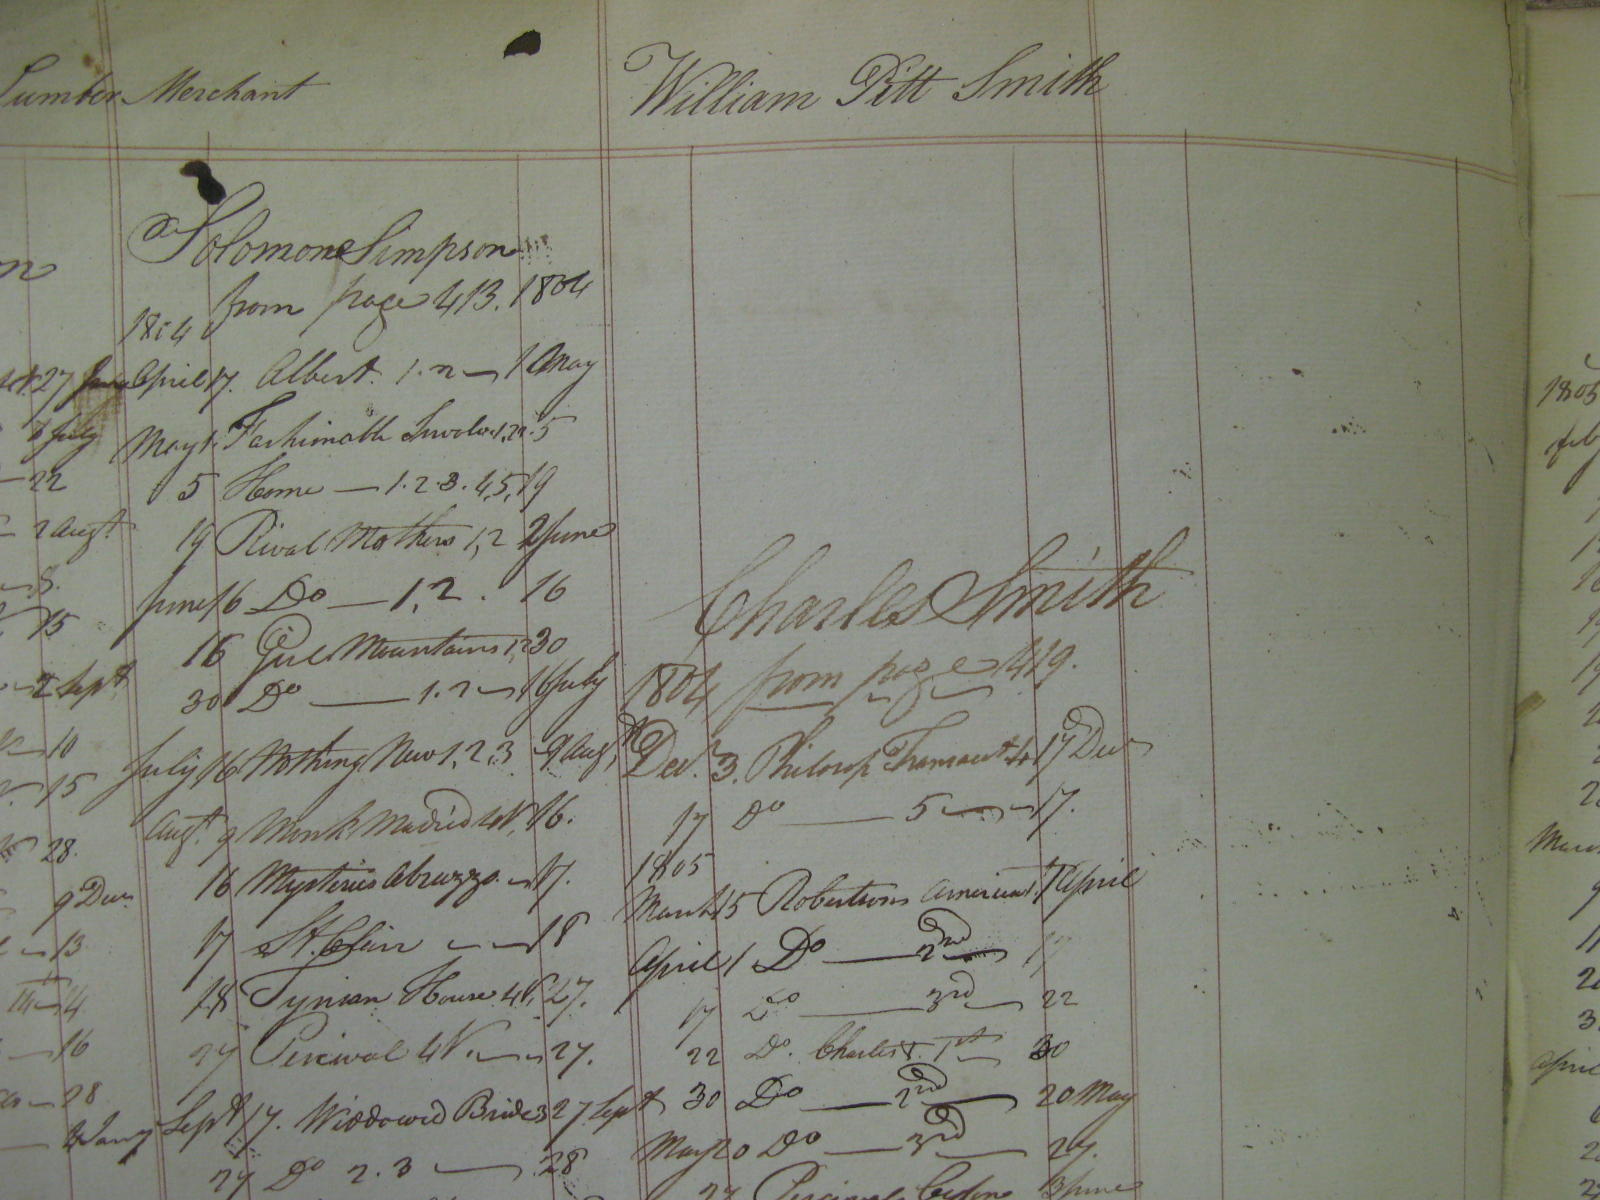 Lumber Merchant
William Pitt Smith
Solomon Simpson
from page 413. 1804
1804
April 17. Albert. 1. 2 — 1 May
May 1. Fashionable 1, 2 5
5 Home — 1. 2. 3. 4, 5, 19
19 Rival Mothers 1, 2 2 June
June 16 Do — 1, 2. 16
16 Mountains 1, 2 30
30 Do — 1. 2 — 16 July
July 16 Nothing New 1, 2, 3 9 Augt
Augt 9 Monk Madrid 4 V. 16.
16 Mysteries Abruzzo — 17.
17 St. Clair — 18
18 Tynian House 4 V. 27.
27 Percival 4 V. — 27.
Sept 17. Widdowed Brides 27 Sept
27 Do 2. 3 — 28
Charles Smith
1804 from page 419.
Decr. 3. Philosop Transact 4 17 Decr
17 Do — 5 — 17.
1805
March 15 Robertsons America 1. 1 April
April 1 Do — 2nd — 17
17 Do — 3rd — 22
22 Do. Charles V. 1st — 30
30 Do — 2nd — 20 May
May 20 Do — 3rd — 27.
27 3 June
27
July
22
2 Augt
8.
15
2 Sept
10
15
28.
9 Decr
13
14
16
28
Jany
1805
Feb
April